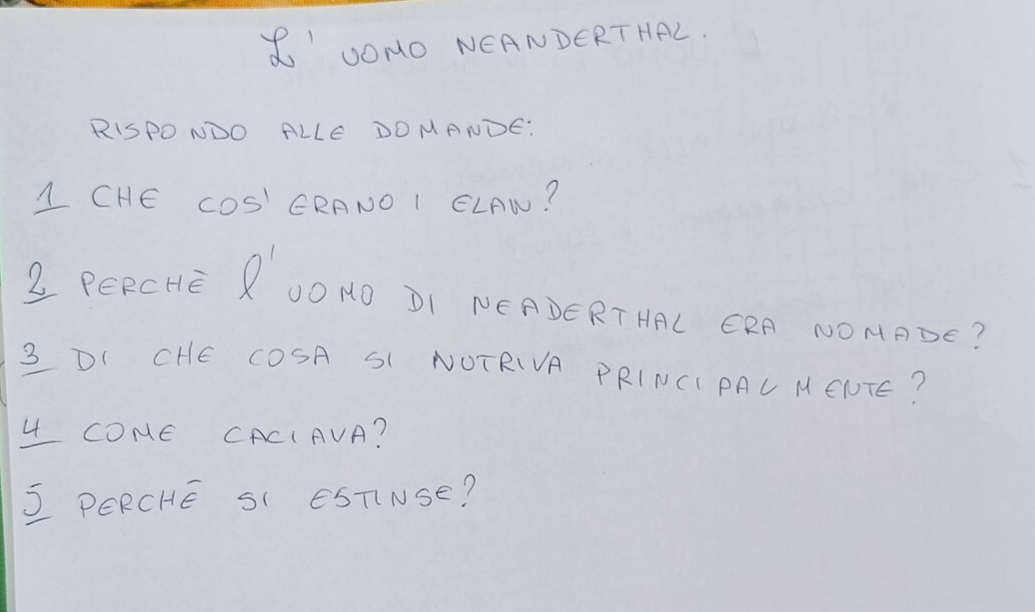 L' UOMO NEANDERTHAL.
RISPONDO ALLE DOMANDE:
1 CHE COS' ERANO I ELAN?
2 PERCHÈ l' UOMO DI NEADERTHAL ERA NOMADE?
3 DI CHE COSA SI NUTRIVA PRINCIPALMENTE?
4 COME CACIAVA?
5 PERCHÈ SI ESTINSE?